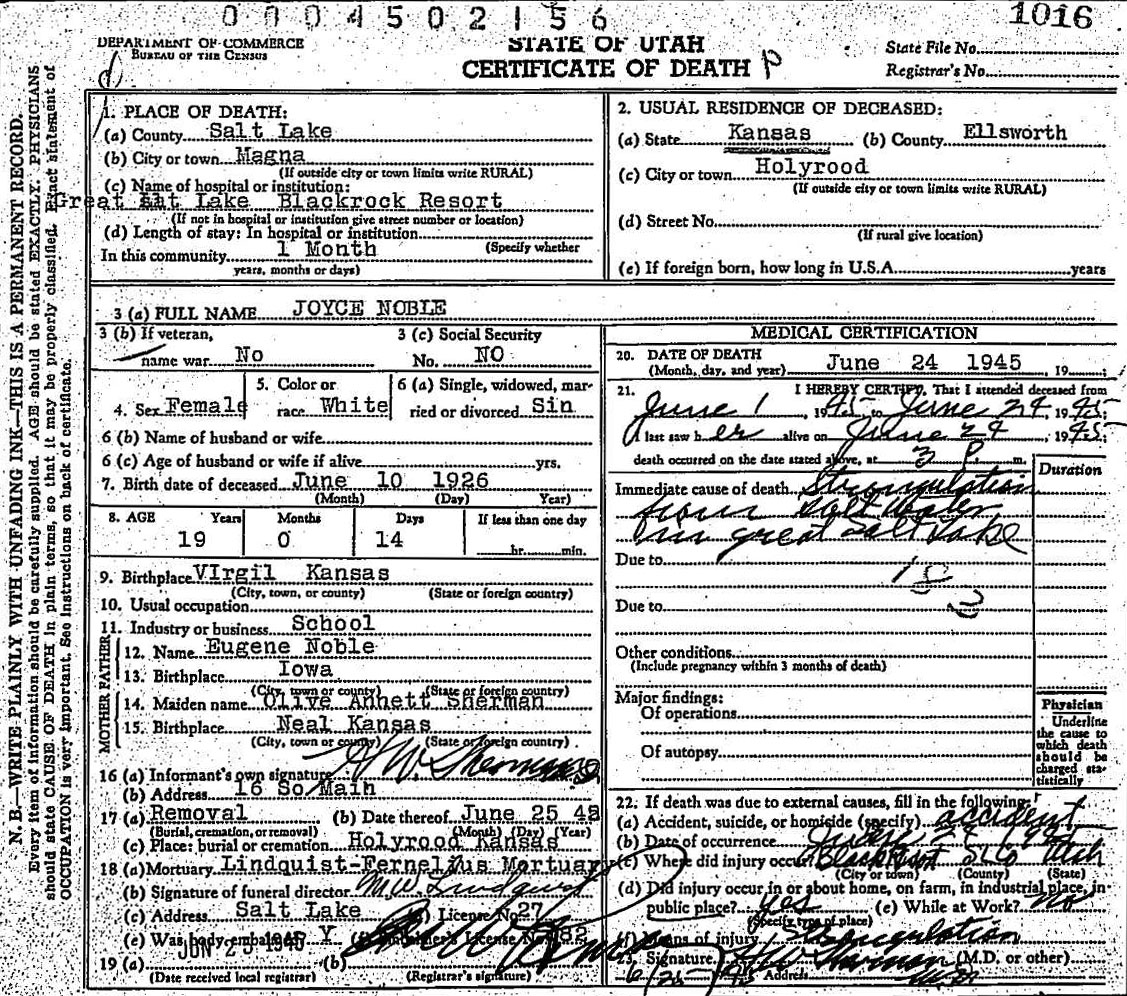 0004502156
1016
DEPARTMENT OF COMMERCE
BUREAU OF THE CENSUS
STATE OF UTAH
CERTIFICATE OF DEATH
State File No.
Registrar's No.
N. B.—WRITE PLAINLY WITH UNFADING INK—THIS IS A PERMANENT RECORD.
Every item of information should be carefully supplied. AGE should be stated EXACTLY. PHYSICIANS
should state CAUSE OF DEATH in plain terms, so that it may be properly classified. Exact statement of
OCCUPATION is very important. See instructions on back of certificate.
1. PLACE OF DEATH:
(a) County Salt Lake
(b) City or town Magna
(If outside city or town limits write RURAL)
(c) Name of hospital or institution:
Great Salt Lake Blackrock Resort
(If not in hospital or institution give street number or location)
(d) Length of stay: In hospital or institution
(Specify whether
In this community 1 Month
years, months or days)
2. USUAL RESIDENCE OF DECEASED:
(a) State Kansas (b) County Ellsworth
(c) City or town Holyrood
(If outside city or town limits write RURAL)
(d) Street No.
(If rural give location)
(e) If foreign born, how long in U.S.A. years
3 (a) FULL NAME JOYCE NOBLE
3 (b) If veteran,
name war No
3 (c) Social Security
No. NO
4. Sex Female
5. Color or
race White
6 (a) Single, widowed, mar-
ried or divorced Sin
6 (b) Name of husband or wife
6 (c) Age of husband or wife if alive yrs.
7. Birth date of deceased June 10 1926
(Month) (Day) Year)
8. AGE Years Months Days If less than one day
19 0 14 hr. min.
9. Birthplace VIrgil Kansas
(City, town, or county) (State or foreign country)
10. Usual occupation
11. Industry or business School
FATHER
12. Name Eugene Noble
13. Birthplace Iowa
(City, town or county) (State or foreign country)
MOTHER
14. Maiden name Olive Annett Sherman
15. Birthplace Neal Kansas
(City, town or county) (State or foreign country)
16 (a) Informant's own signature
(b) Address 16 So Main
17 (a) Removal (b) Date thereof June 25 45
(Burial, cremation, or removal) (Month) (Day) (Year)
(c) Place: burial or cremation Holyrood Kansas
18 (a) Mortuary Lindquist-Fernelius Mortuary
(b) Signature of funeral director M W Lindquist
(c) Address Salt Lake (d) License No 27
(e) Was body embalmed Y (f) Embalmer's License No 82
JUN 25 1945
19 (a) (b)
(Date received local registrar) (Registrar's signature)
MEDICAL CERTIFICATION
20. DATE OF DEATH
(Month, day, and year) June 24 1945, 19
21. I HEREBY CERTIFY, That I attended deceased from
June 1, 1945, to June 24, 1945;
I last saw her alive on June 24, 1945;
death occurred on the date stated above, at 3 P. m.
Duration
Immediate cause of death Strangulation
from Salt Water
in great Salt Lake
Due to
Due to
Other conditions
(Include pregnancy within 3 months of death)
Major findings:
Of operations
Of autopsy
Physician
Underline
the cause to
which death
should be
charged sta-
tistically
22. If death was due to external causes, fill in the following:
(a) Accident, suicide, or homicide (specify) accident
(b) Date of occurrence June 24 1945
(c) Where did injury occur? S L Co Utah
(City or town) (County) (State)
(d) Did injury occur in or about home, on farm, in industrial place, in
public place? yes (e) While at Work? no
(Specify type of place)
(f) Means of injury Strangulation
23. Signature (M.D. or other)
6/25/45 Address